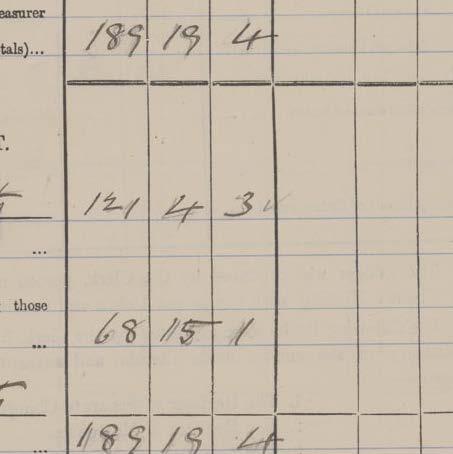 easurer
tals)... 189 19 4
T.
121 4 3 ✓
...
those
... 68 15 1
... 189 19 4